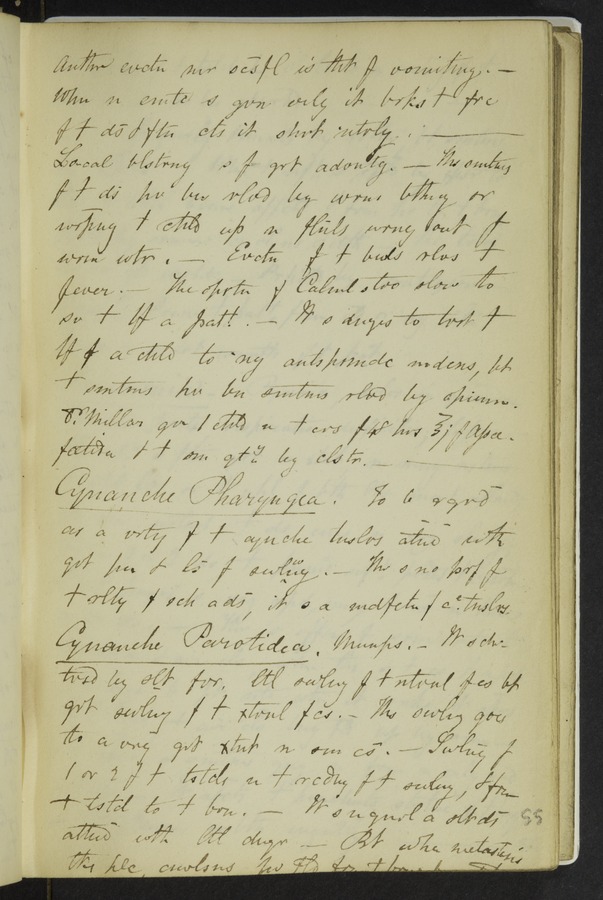 Anthr evctn mr scsfl is tht f vomiting. —
Whn n emtc s gvn erly it brks t frc
f t ds & ftn cts it shrt ntrly. : —
Local blstrng s f grt advntg. — Ths smtms
f t ds hv bn rlvd by wrm bthng or
wrpng t chld up n flnls wrng out f
wrm wtr. — Evctn f t bwls rlvs t
fever. — The oprtn f Calml s too slow to
sv t lf a patt. — It s dngrs to trst t
lf f a chld to ny antspsmdc mdcns, bt
t smtms hv bn smtms rlvd by opium.
Dr Millar gv 1 chld n t crs f 48 hrs ʒj f Assa-
fœtida & t sm qty by clstr. —
Cynanche Pharyngea. To b rgrd
as a vrty f t cynche tnslrs attnd with
grt pn & ls f swlng. — Thr s no prf f
t rlty f sch a ds, it s a mdfctn f c. tnslrs.
Cynanche Parotidea. Mumps. — It s ch-
trsd by slt fvr, ltl swlng f t ntrnl fcs bt
grt swlng f t xtrnl fcs. — Ths swlng gos
to a vry grt xtnt n sm cs. — Swlng f
1 or 2 f t tstcls n t rcdng f t swlng, & frm
t tstcl to t brn. — It s n gnrl a slt ds
attnd with ltl dngr — Bt when metastasis
tks plc, cnvlsns
55